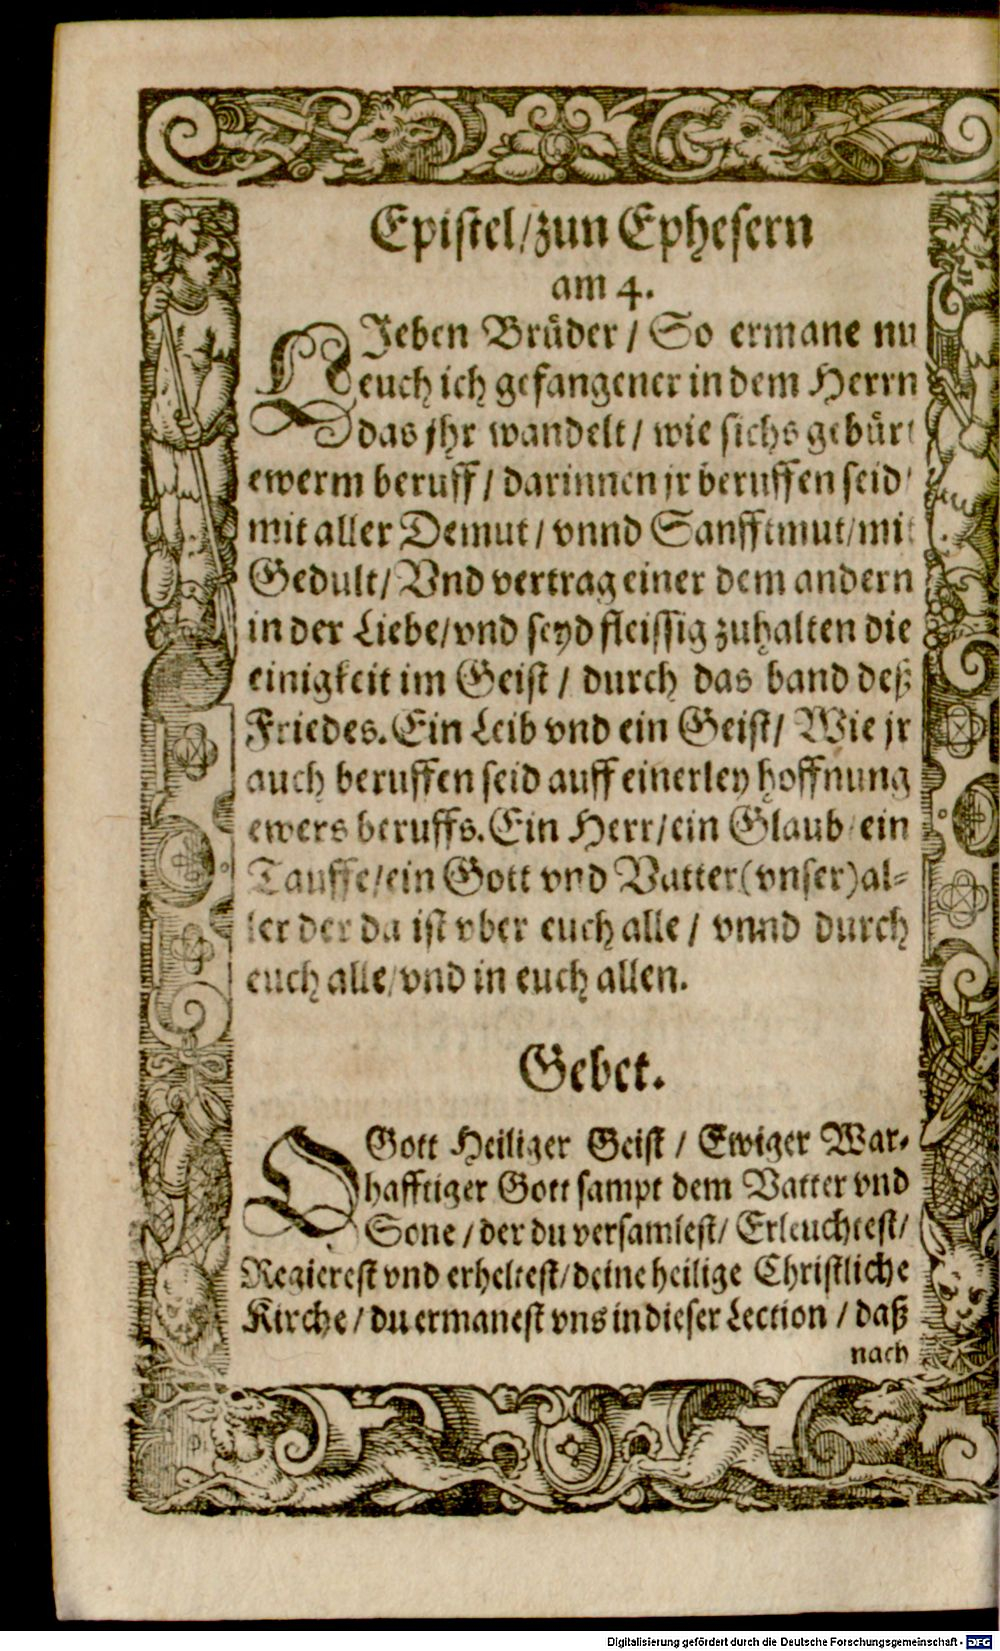 Epistel/zun Ephesern
am 4.
LIeben Brüder / So ermane nu
euch ich gefangener in dem Herrn
das jhr wandelt / wie sichs gebürt
ewerm beruff / darinnen jr beruffen seid/
mit aller Demut / vnnd Sanfftmut/mit
Gedult/ Vnd vertrag einer dem andern
in der Liebe/vnd seyd fleissig zuhalten die
einigkeit im Geist / durch das band deß
Friedes. Ein Leib vnd ein Geist/ Wie jr
auch beruffen seid auff einerley hoffnung
ewers beruffs. Ein Herr/ein Glaub/ein
Tauffe/ein Gott vnd Vatter(vnser)al=
ler der da ist vber euch alle / vnnd durch
euch alle/vnd in euch allen.
Gebet.
O Gott Heiliger Geist / Ewiger War=
hafftiger Gott sampt dem Vatter vnd
Sone / der du versamlest/ Erleuchtest/
Regierest vnd erheltest/deine heilige Christliche
Kirche / du ermanest vns in dieser Lection / daß
nach
Digitalisierung gefördert durch die Deutsche Forschungsgemeinschaft - DFG